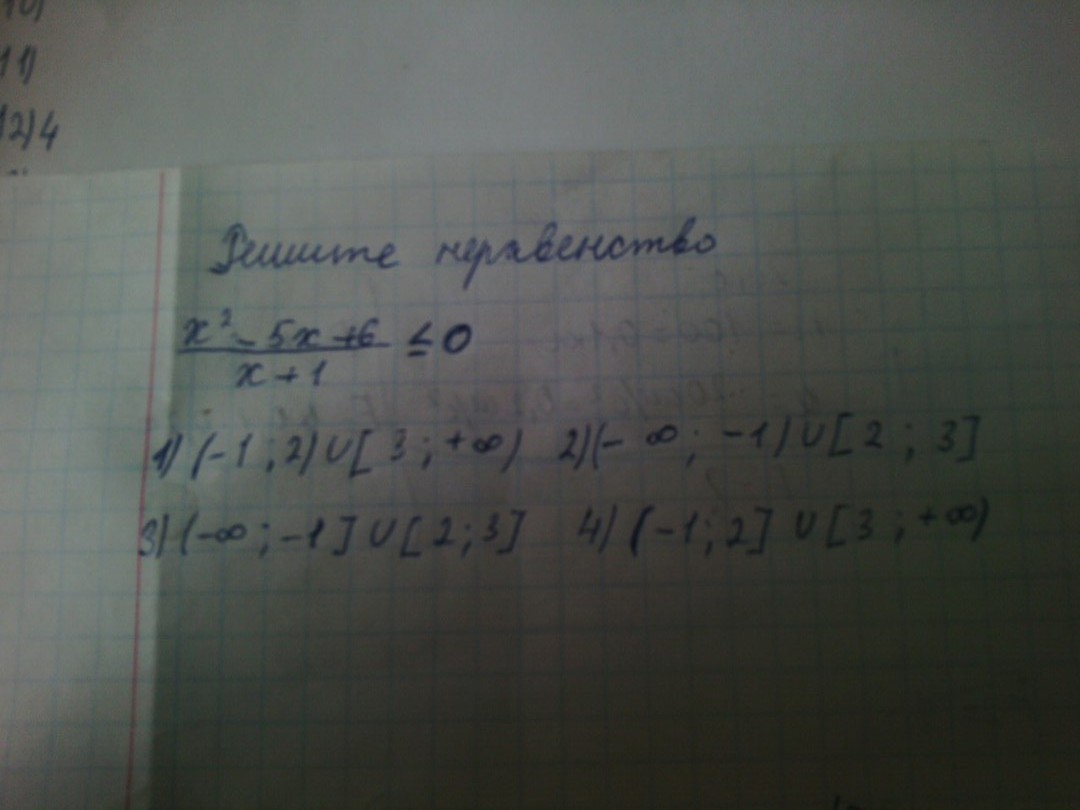 11)
12) 4
Решите неравенство
x² - 5x + 6 ≤ 0
x + 1
1) (-1 ; 2) ∪ [ 3 ; +∞) 2) (- ∞ ; -1) ∪ [ 2 ; 3 ]
3) (-∞ ; -1 ] ∪ [ 2 ; 3 ] 4) ( -1 ; 2 ] ∪ [ 3 ; +∞)